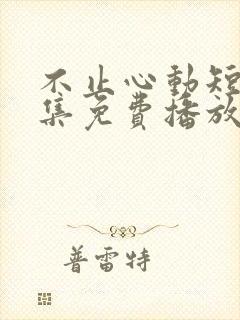 不止心動短
集免費播放
普雷特